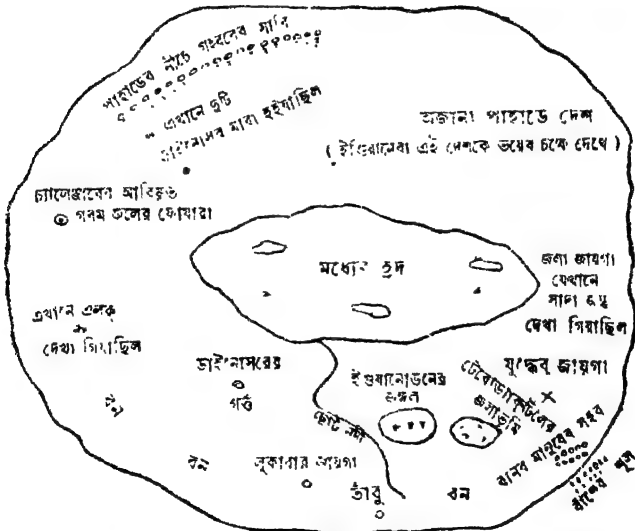 পাহাড়ের নীচে গহ্বরের সারি
এখানে দুটি
ডাইনোসর মারা হইয়াছিল
অজানা পাহাড়ে দেশ
( ইণ্ডিয়ানেরা এই দেশকে ভয়ের চক্ষে দেখে )
চ্যালেঞ্জারের আবিষ্কৃত
গরম জলের ফোয়ারা
মধ্যের হ্রদ
জলা জায়গা
যেখানে
সাদা জন্তু
দেখা গিয়াছিল
এখানে এলক্
দেখা গিয়াছিল
ডাইনোসরের
গর্ত্ত
ইগুয়ানোডনের
জঙ্গল
যুদ্ধের জায়গা
টেরোড্যাকটিলের
জলাভূমি
ছোট নদী
বন
বন
লুকাবার জায়গা
তাঁবু
বন
বানর মানুষের সহর
বাঁশের শূল